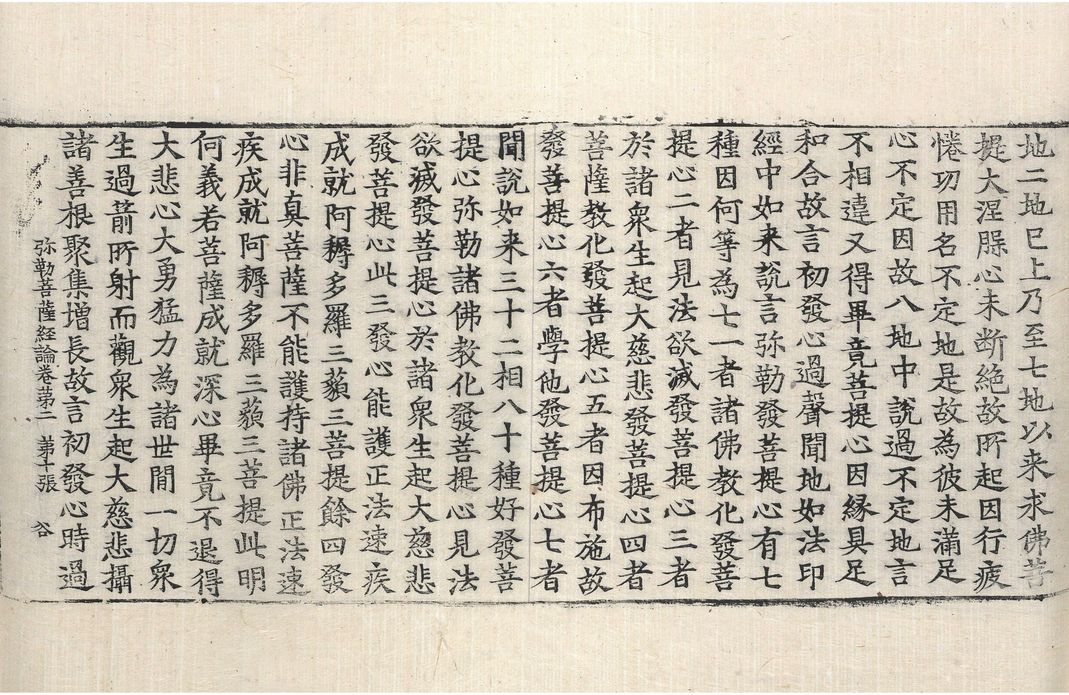 地二地已上乃至七地以来求佛菩
提大涅槃心未断絶故所起因行疲
惓功用名不定地是故為彼未滿足
心不定因故八地中說過不定地言
不相違又得畢竟菩提心因縁具足
和合故言初發心過聲聞地如法印
經中如来說言弥勒發菩提心有七
種因何等為七一者諸佛教化發菩
提心二者見法欲滅發菩提心三者
於諸衆生起大慈悲發菩提心四者
菩薩教化發菩提心五者因布施故
發菩提心六者學他發菩提心七者
聞說如来三十二相八十種好發菩
提心弥勒諸佛教化發菩提心見法
欲滅發菩提心於諸衆生起大慈悲
發菩提心此三發心能護正法速疾
成就阿耨多羅三藐三菩提餘四發
心非真菩薩不能護持諸佛正法速
疾成就阿耨多羅三藐三菩提此明
何義若菩薩成就深心畢竟不退得
大悲心大勇猛力為諸世間一切衆
生過箭所射而觀衆生起大慈悲攝
諸善根聚集增長故言初發心時過
弥勒菩薩経論卷苐二 苐十張 谷